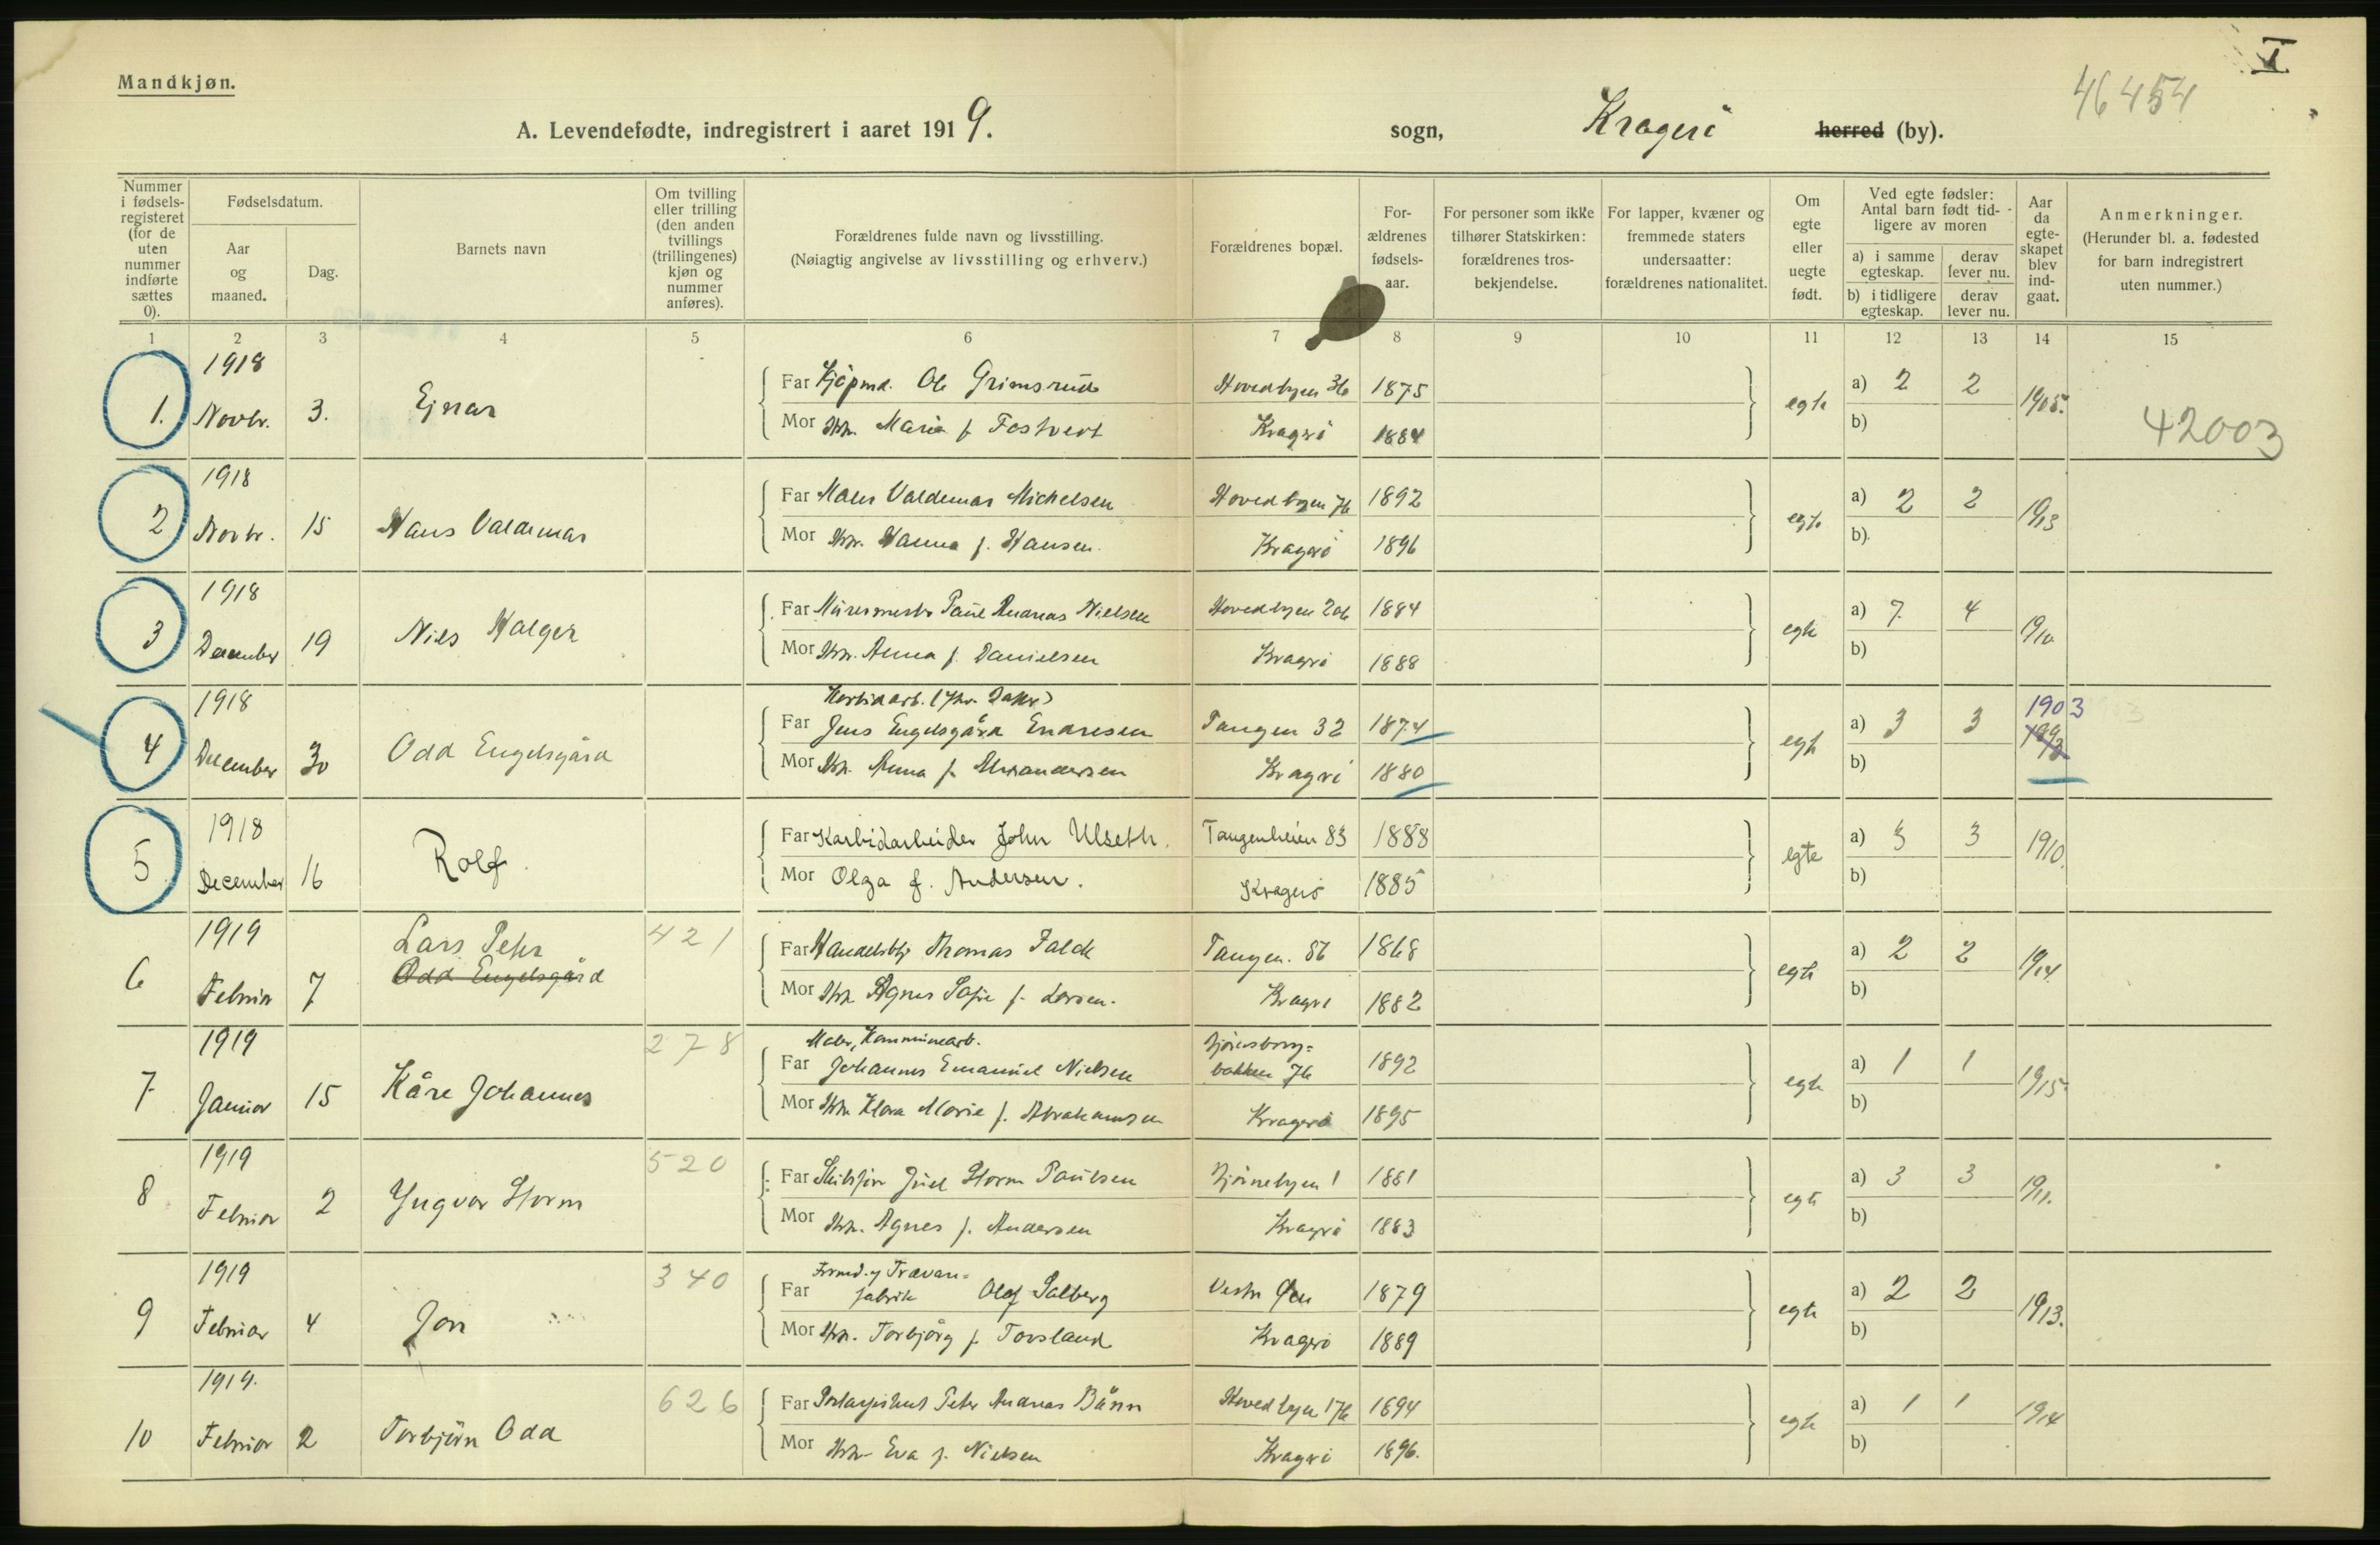 Mandkjøn.
I
46454
A. Levendefødte, indregistrert i aaret 1919.
sogn, Kragerö herred (by).
Nummer i fødsels-registeret (for de uten nummer indførte sættes 0).
Fødselsdatum.
Aar og maaned.
Dag.
Barnets navn
Om tvilling eller trilling (den anden tvillings (trillingenes) kjøn og nummer anføres).
Forældrenes fulde navn og livsstilling.
(Nøiagtig angivelse av livsstilling og erhverv.)
Forældrenes bopæl.
For-ældrenes fødsels-aar.
For personer som ikke tilhører Statskirken: forældrenes tros-bekjendelse.
For lapper, kvæner og fremmede staters undersaatter: forældrenes nationalitet.
Om egte eller uegte født.
Ved egte fødsler: Antal barn født tid-ligere av moren
a) i samme egteskap.
derav lever nu.
b) i tidligere egteskap.
derav lever nu.
Aar da egte-skapet blev ind-gaat.
Anmerkninger.
(Herunder bl. a. fødested for barn indregistrert uten nummer.)
1 2 3 4 5 6 7 8 9 10 11 12 13 14 15
1918
1. Novbr. 3. Ejnar
Far Kjöpmd. Ole Grimsrud Hovedbyen 36 1875
Mor Hr. Marie f. Fostvedt Kragerö 1884
egte a) 2 2 1905.
b)
42003
1918
2 Novbr. 15 Hans Valdemar
Far Maler Valdemar Michelsen Hovedbyen 76 1892
Mor Hr. Hanna f. Hansen. Kragerö 1896
egte a) 2 2 1913
b)
1918
3 December 19 Nils Holger
Far Murermester Paul Andreas Nielsen Hovedbyen 206 1884
Mor Hr. Anna f. Danielsen Kragerö 1888
egte a) 7. 4 1910
b)
1918
4 December 30 Odd Engelsgård
Karbidarb.
Far Jens Engelsgård Endresen Tangen 32 1874
Mor Hr. Anna f. Kragerö 1880
egte a) 3 3 1903
b)
1918
5 December 16 Rolf
Far Karbidarbeider John Ulseth. Tangenheien 83 1888
Mor Olga f. Andersen. Kragerö 1885
egte a) 3 3 1910.
b)
1919
6 Februar 7 Lars Peter
Odd Engelsgård
421
Far Thomas Falck Tangen. 86 1868
Mor Hr. Agnes Sofie f. Larsen. Kragerö 1882
egte a) 2 2 1914
b)
1919
7 Januar 15 Kåre Johannes
278
Maler, Kommunearb.
Far Johannes Emanuel Nielsen bakken 76 1892
Mor Hr. Klara Marie f. Abrahamsen Kragerö 1895
egte a) 1 1 1915
b)
1919
8 Februar 2 Yngvar Storm
520
Far Juel Storm Paulsen 1 1881
Mor Hr. Agnes f. Andersen Kragerö 1883
egte a) 3 3 1911.
b)
1919
9 Februar 4 Jon
340
Far fabrik Olof Salberg Vestre Øen 1879
Mor Hr. Torbjörg f. Torsland Kragerö 1889
egte a) 2 2 1913.
b)
1919.
10 Februar 2 Torbjörn Odd
626
Far Peter Andreas Bånn Hovedbyen 176 1894
Mor Hr. Eva f. Nielsen Kragerö 1896.
egte a) 1 1 1914
b)